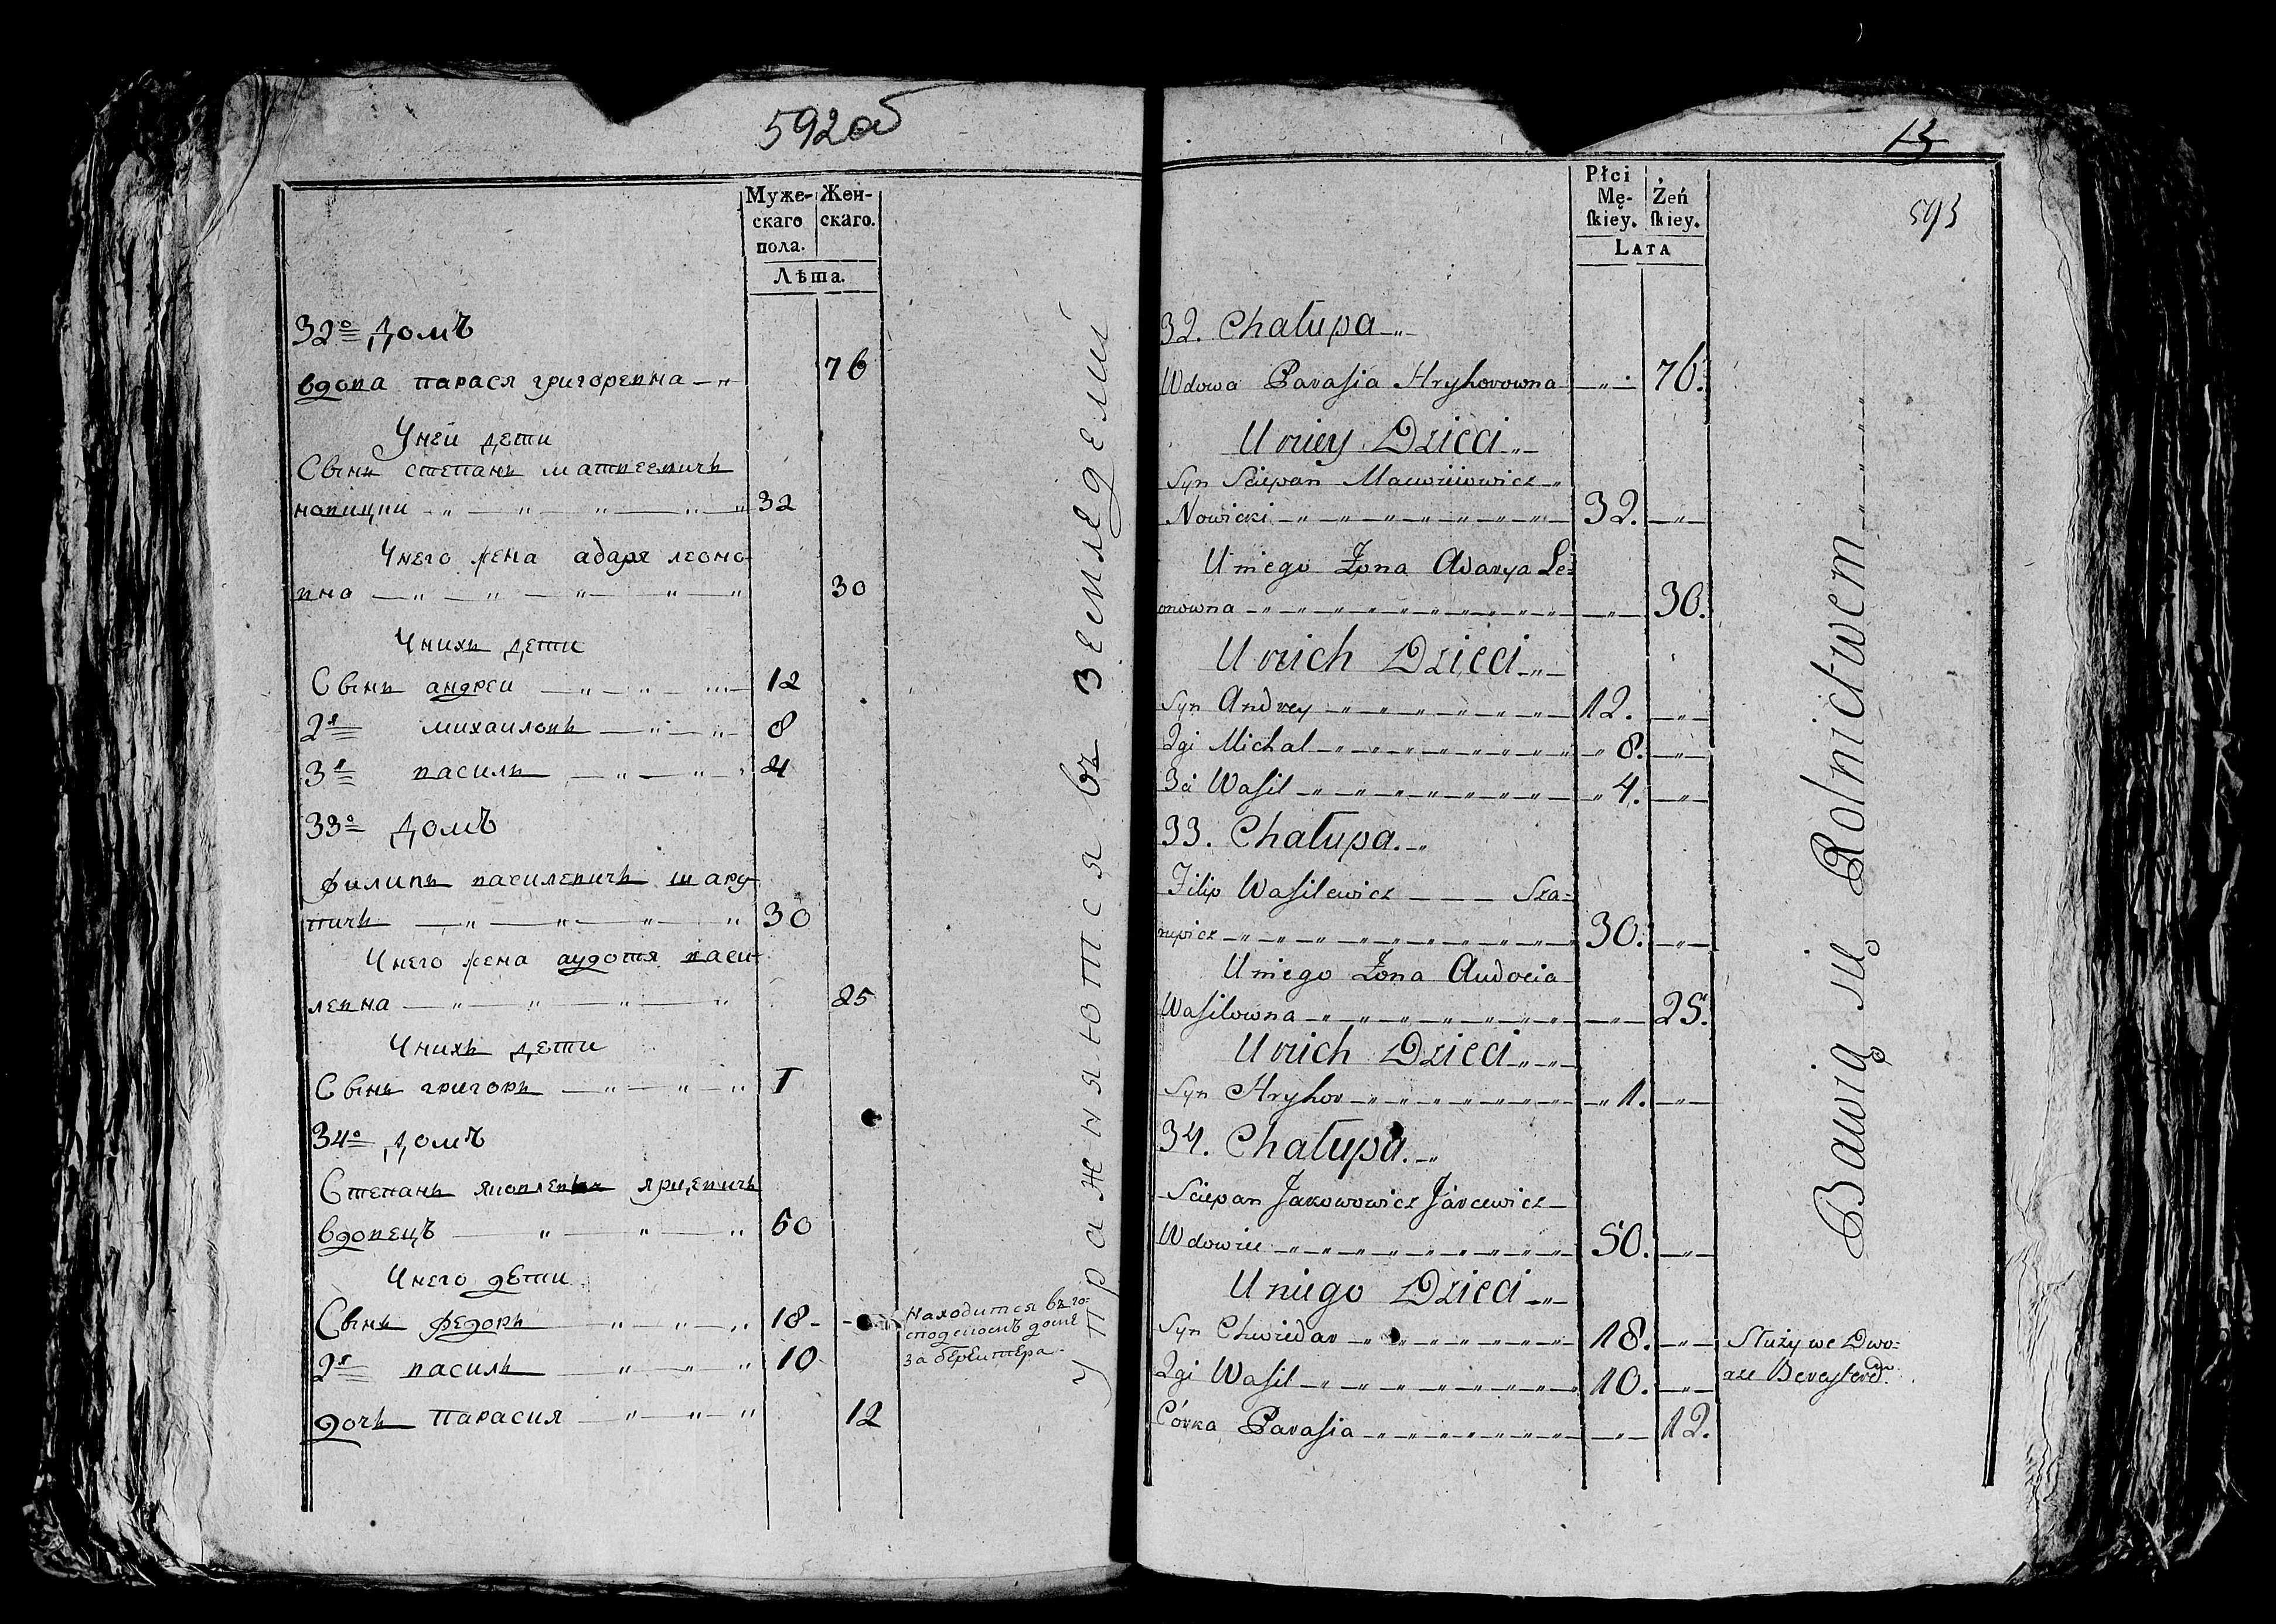 592об
Муже- Жен-
скаго скаго.
пола.
Лѣта.
32º Домъ
вдова парася григоревна 76
Уней дети
Сынъ степанъ матвеевичъ
новицки 32
Унего жена адаря леоно-
вна 30
Унихъ дети
Сынъ андреи 12
2я михаилонъ 8
3я василь 4
33º Домъ
филипъ василевичъ шару-
пичъ 30
Унего жена аудотя васи-
левна 25
Унихъ дети
Сынъ григоръ 1
34º домъ
Степанъ ярцевичъ
вдовецъ 50
Унего дети
Сынъ федоръ 18
2я василь 10
дочь парасия 12
Находится въ го-
сподскомъ доме
за береитера
упражняются въ земледелии
13
593
Płci
Mę- Żeń
ſkiey. ſkiey.
LATA
32. Chałupa
Wdowa Parasia Hryhorowna 76.
U niey Dzieci
Syn Sciepan Macwiiowicz
Nowicki 32.
U niego Żona Adarya Le-
onowna 30.
U nich Dzieci
Syn Andrey 12.
2gi Michal 8.
3i Wasil 4.
33. Chałupa.
Filip Wasilewicz Sza-
rupicz 30.
U niego Żona Audocia
Wasilowna 25.
U nich Dzieci
Syn Hryhor 1.
34. Chałupa.
Sciepan Jakowowicz Jarcewicz
Wdowiec 50.
U niego Dzieci
Syn Chwiedar 18.
2gi Wasil 10.
Córka Parasia 12.
Służy we Dwo-
rze
Bawią się Rolnictwem